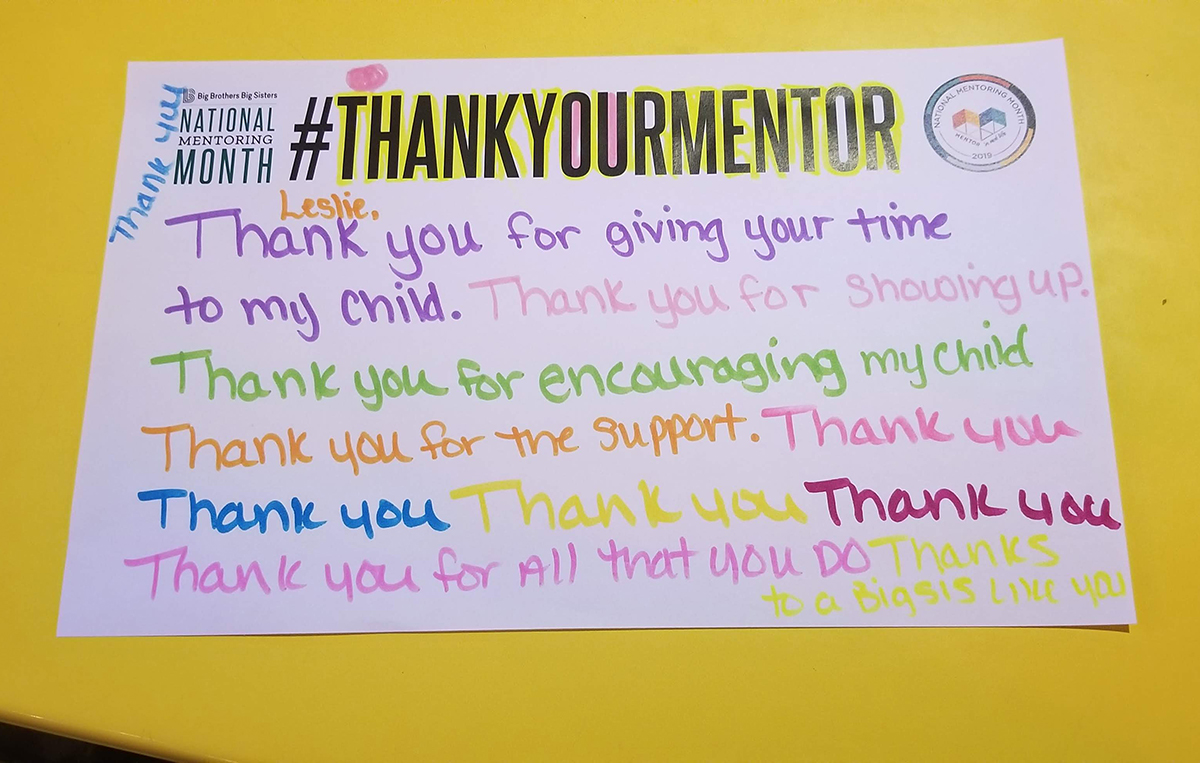 Big Brothers Big Sisters
NATIONAL
MENTORING
MONTH
#THANKYOURMENTOR
NATIONAL MENTORING MONTH
MENTOR in real life
2019
Thank you
Leslie,
Thank you for giving your time
to my child. Thank you for showing up.
Thank you for encouraging my child
Thank you for the support. Thank you
Thank you Thank you Thank you
Thank you for All that you DO Thanks
to a Big sis Like you